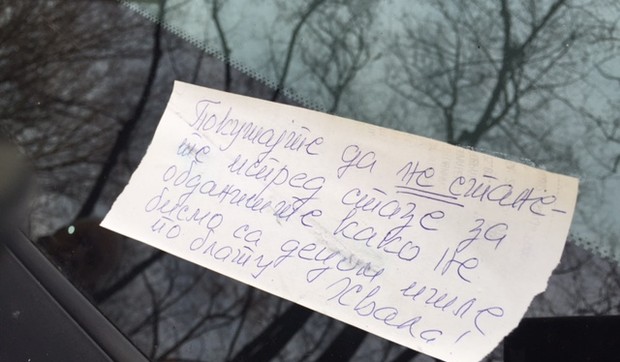 Покушајте да не стане-
те испред стазе за
обданиште како не
бисмо са децом ишле
по блату Хвала!